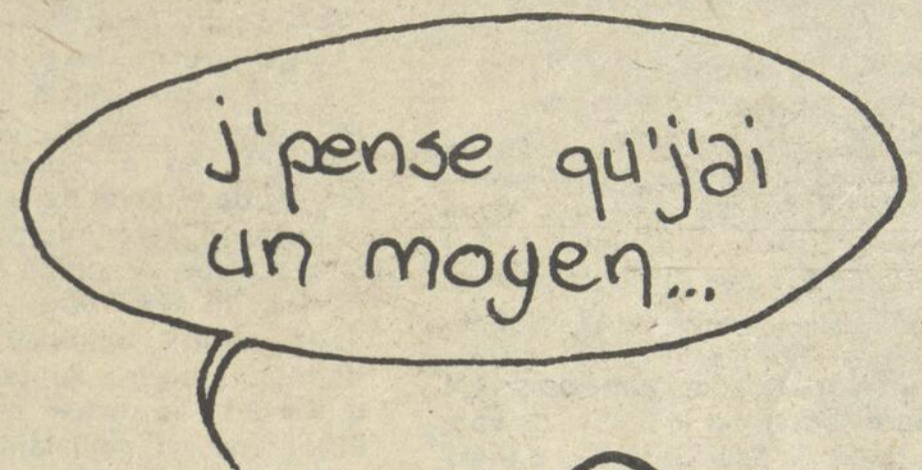 j'pense qu'j'ai
un moyen...